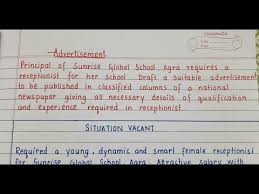 Advertisement
Principal of Sunrise Global School Agra requires a
receptionist for her school. Draft a suitable advertisement
to be published in classified columns of a national
newspaper giving all necessary details of qualification
and experience required in receptionist.
SITUATION VACANT
Required a young, dynamic and smart female receptionist
for Sunrise Global School, Agra. Attractive salary with